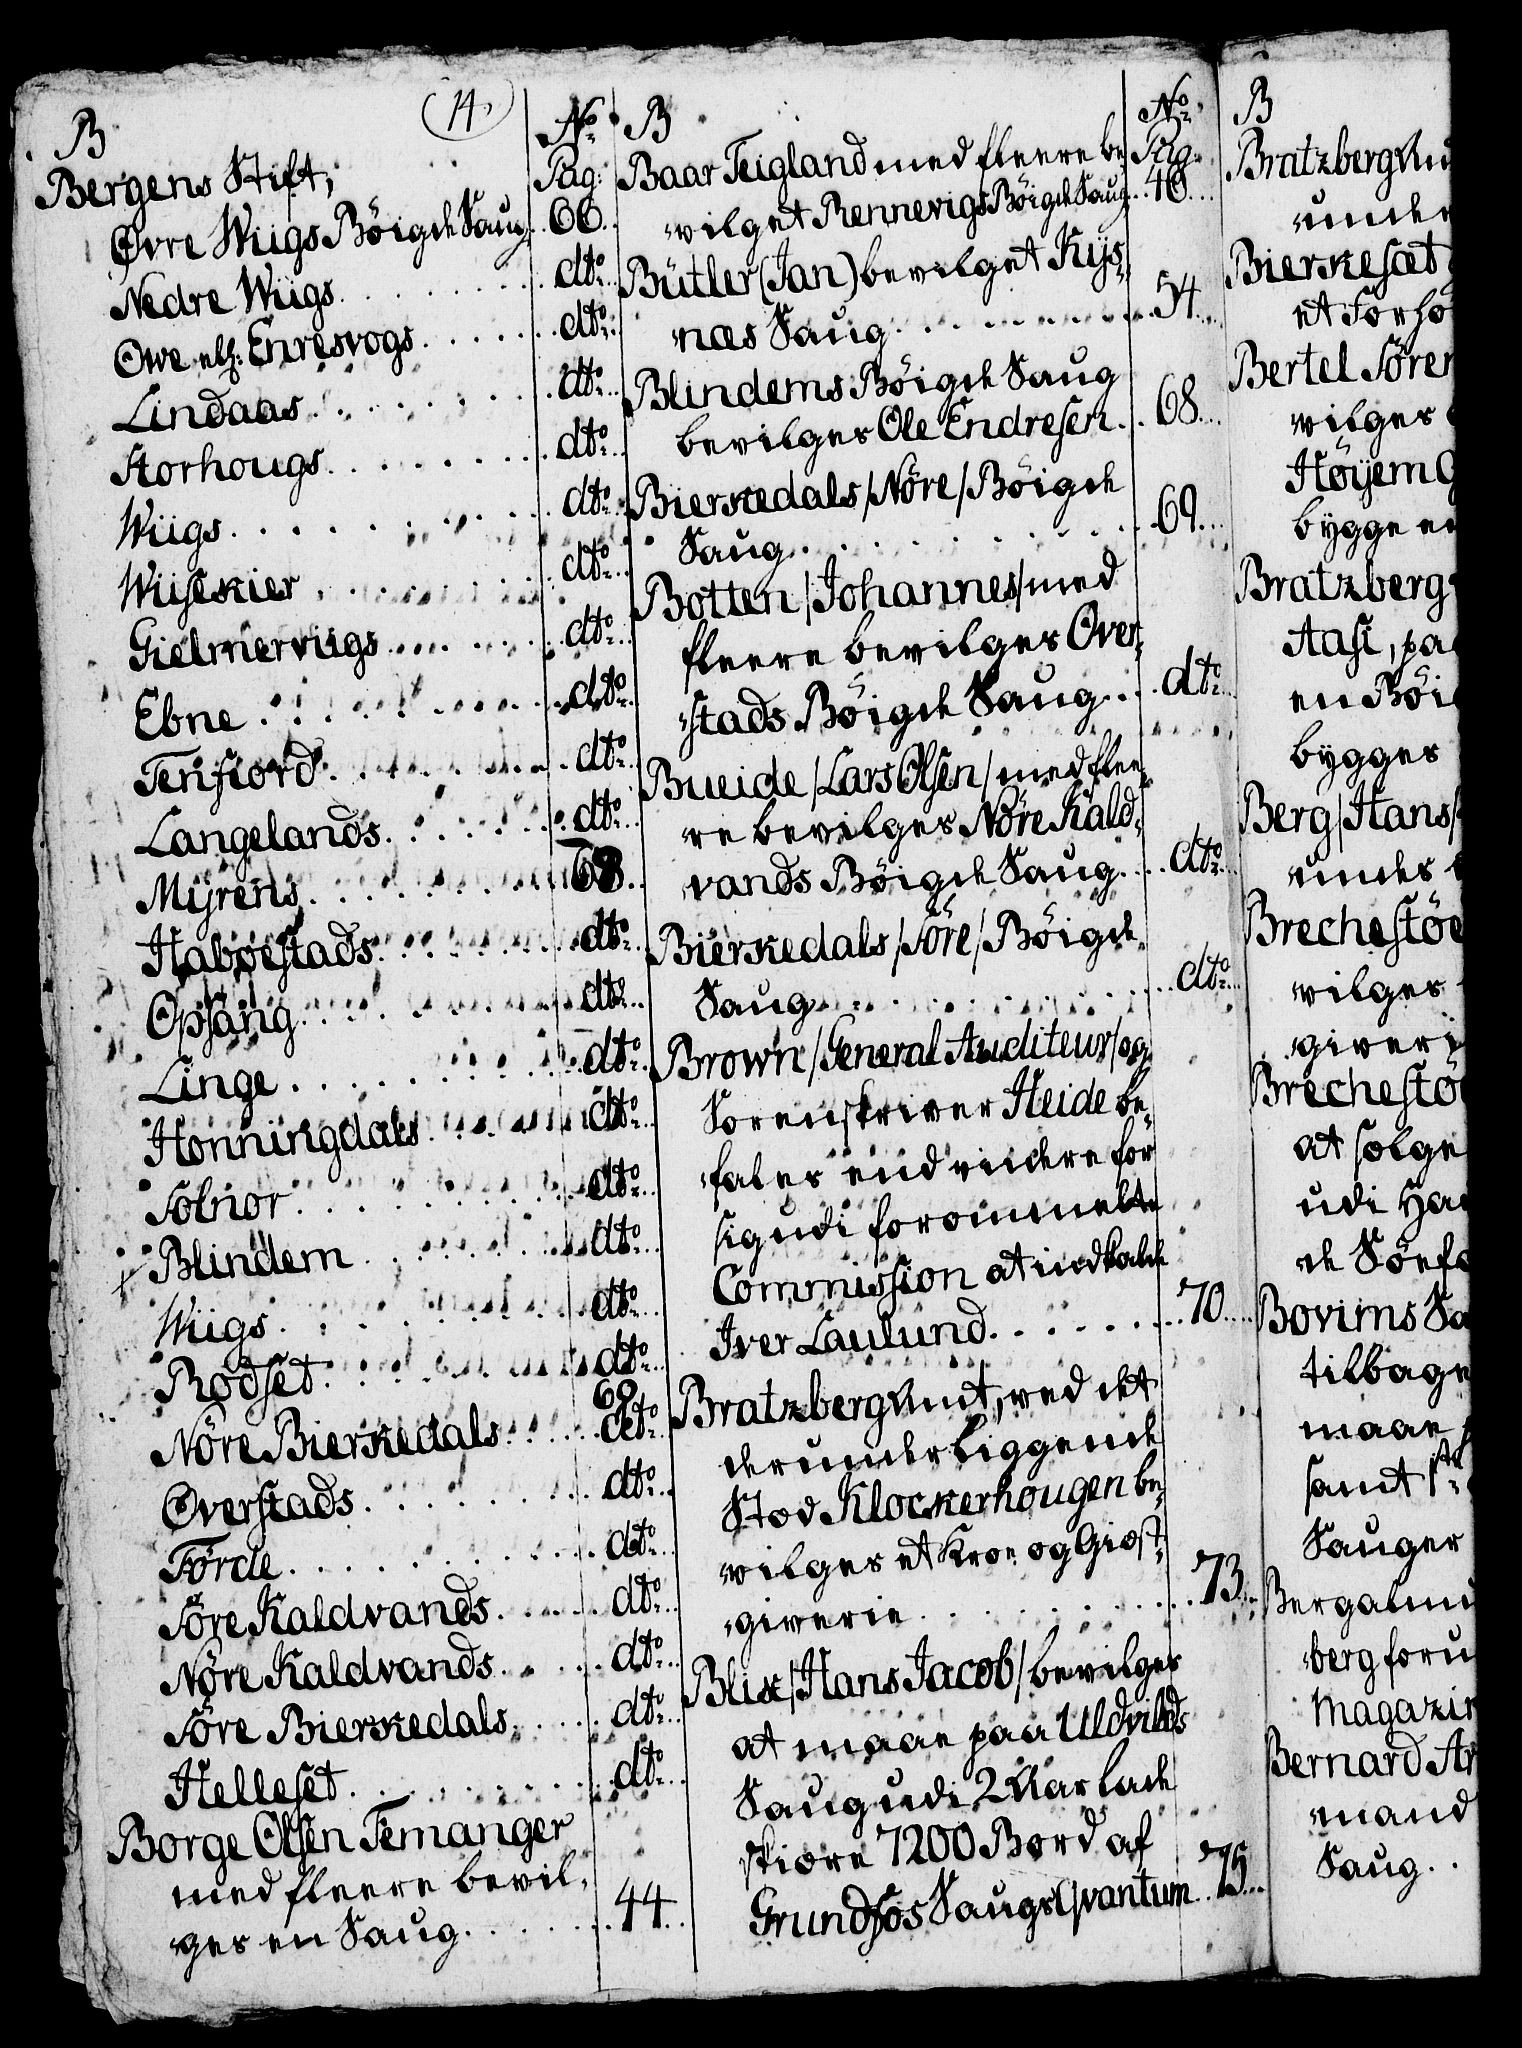 (14.)
B
No
Pag:
Bergens Stift,
Øvre Wiigs Böigde Saug. 66.
Nedre Wiigs. dto
Owe elh: Enresvogs. dto
Lindaas. dto
Storhougs. dto
Wiigs. dto
Wiiseskier dto
Gielmerviigs dto
Ebne dto
Tenfiord. dto
Langelands. dto
Myrens. 68.
Haboestads. dto
Opsang. dto
Linge. dto
Honningdals. dto
Solnor. dto
Blindem dto
Wiigs. dto
Rodset. dto
69
Nöre Bierkedals. dto
Overstads. dto
Förde. dto
Söre Kaldvands. dto
Nöre Kaldvands. dto
Söre Bierkedals. dto
Helleset. dto
Borge Olsen Temanger
med fleere bevil,
ges en Saug. 44.
B
No
Pag:
Baar Teigland med fleere be
vilget Rennevigs Böigde Saug. 46.
Bütler (Jan) bevilget Kys,
næs Saug 54
Blindems Böigde Saug
bevilges Ole Endresen. 68.
Bierkedals /Nöre/ Böigde
Saug. 69.
Botten /Johannes/ med
fleere bevilges Over,
stads Böigde Saug. dto
Bueide /Lars Olsen/ med flee,
re bevilges Nöre Kald,
vands Böigde Saug. dto
Bierkedals /Söre/ Böigde
Saug. dto
Brown /General Auditeur/ og
Sorenskriver Heide be,
fales end videre for
sig udi forommelte
Commission at indkalde
Iver Laulund. 70.
Bratzberg Amt, ved det
derunder liggende
Stod Klockerhougen be,
vilges et Kroe og Giæst,
giverie 73.
Blix /Hans Jacob/ bevilges
at maae paa Uldvilds
Saug udi 2 Aar lade
skiære 7200 Bord af
Grundsös Saugs Qvantum 75.
B
Bratzberg Am
unde
Bierkesæt
et Forhö
Bertel Sören
vilges
Höyem G
bygge en
Bratzberg
Aasi, paa
en Böi
bygges
Berg /Hans/
undes
Brechestöe
vilges
giveri
Brechestö
at sælge
udi Ha
de Söefa
Bovims Sa
tilbage
maae
samt
Sauger
Bergamt
berg foru
Magazin
Bernard Ar
mand
Saug.